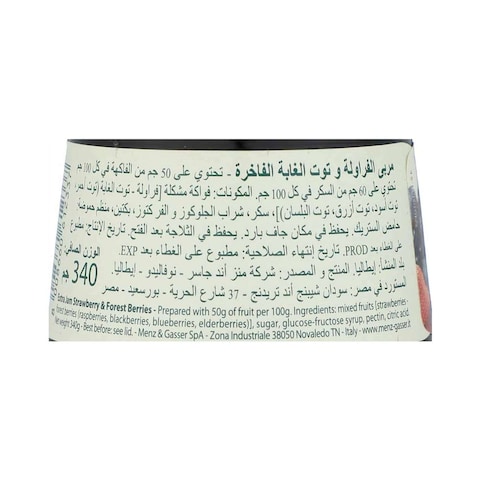 مربى الفراولة و توت الغابة الفاخرة - تحتوي على 50 جم من الفاكهة في كل 100 جم
تحتوي على 60 جم من السكر في كل 100 جم. المكونات: فواكة مشكلة [فراولة - توت الغابة (توت أحمر،
توت أسود، توت أزرق، توت البلسان)]، سكر، شراب الجلوكوز و الفركتوز، بكتين، منظم حموضة:
حامض الستريك. يحفظ في مكان جاف بارد. يحفظ في الثلاجة بعد الفتح. تاريخ الإنتاج: مطبوع
على الغطاء بعد PROD. تاريخ إنتهاء الصلاحية: مطبوع على الغطاء بعد EXP.
بلد المنشأ: إيطاليا. المنتج و المصدر: شركة منز أند جاسر - نوفاليدو - إيطاليا.
المستورد في مصر: سودان شيبنج أند تريدنج - 37 شارع الحرية - بورسعيد - مصر
الوزن الصافي:
340 جم
Extra Jam Strawberry & Forest Berries - Prepared with 50g of fruit per 100g. Ingredients: mixed fruits [strawberries -
Forest berries (raspberries, blackberries, blueberries, elderberries)], sugar, glucose-fructose syrup, pectin, citric acid.
Net weight 340g - Best before: see lid. - Menz & Gasser SpA - Zona Industriale 38050 Novaledo TN - Italy - www.menz-gasser.it